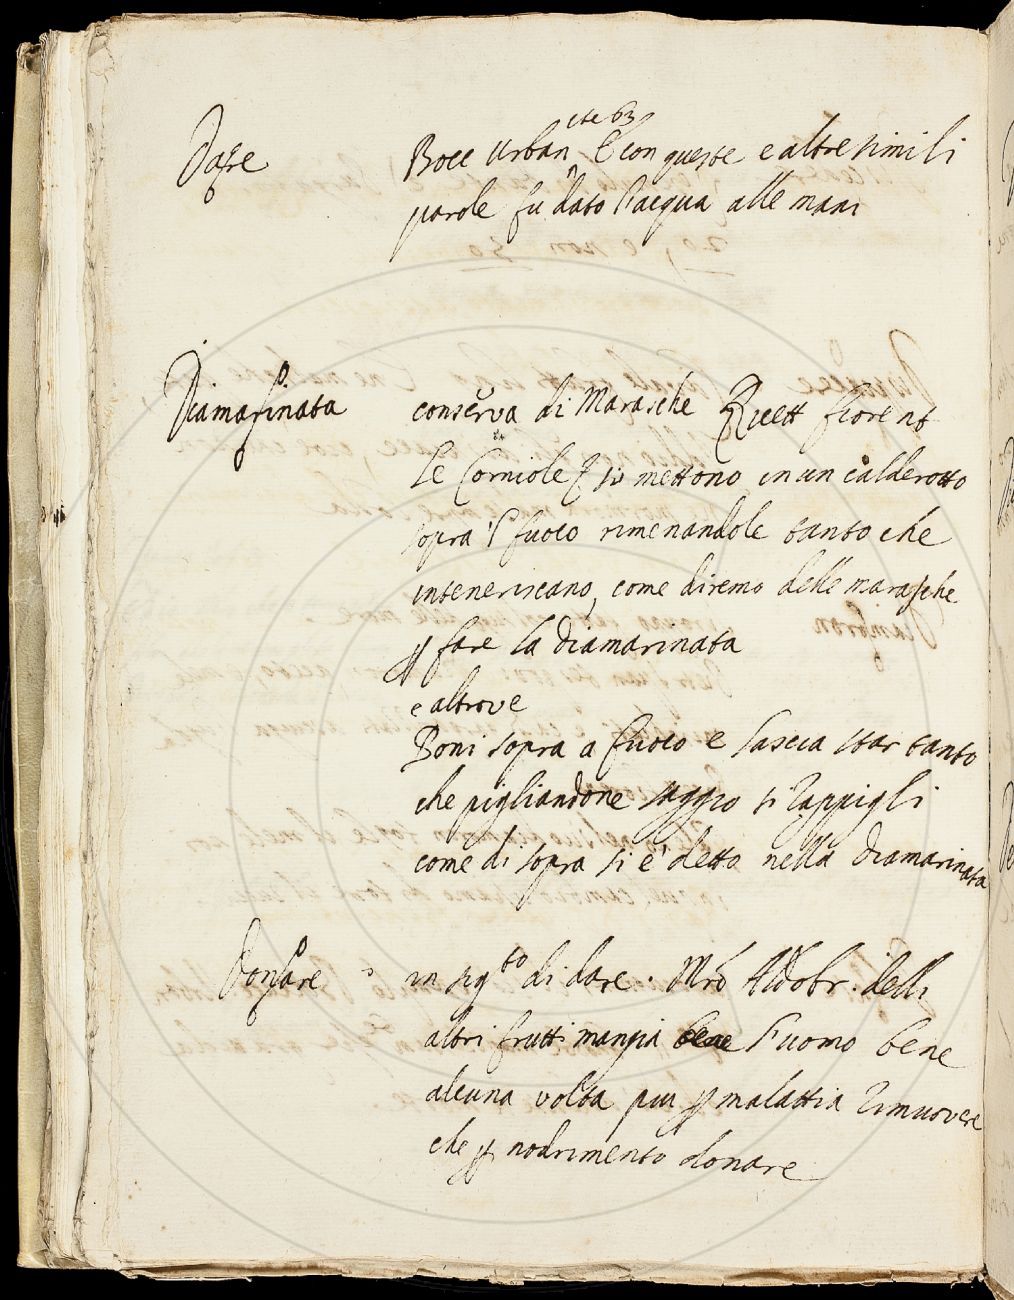 Dare
Bocc Urban cte 63 E con queste e altre simili
parole fu dato l'acqua alle mani
Diamarinata
conserva di Marasche Ricett fiorent
le Corniole si mettono in un calderotto
sopra 'l fuoco rimenandole tanto che
inteneriscano, come diremo delle marasche
p fare la diamarinata
e altrove
Poni sopra a fuoco e lascia star tanto
che pigliandone saggio si rappigli
come di sopra si e' detto nella diamarinata
Donare
in sig.to di dare. Mro Aldobr. delli
altri frutti mangia l'uomo bene
alcuna volta piu p malattia rimuovere
che p nodrimento donare